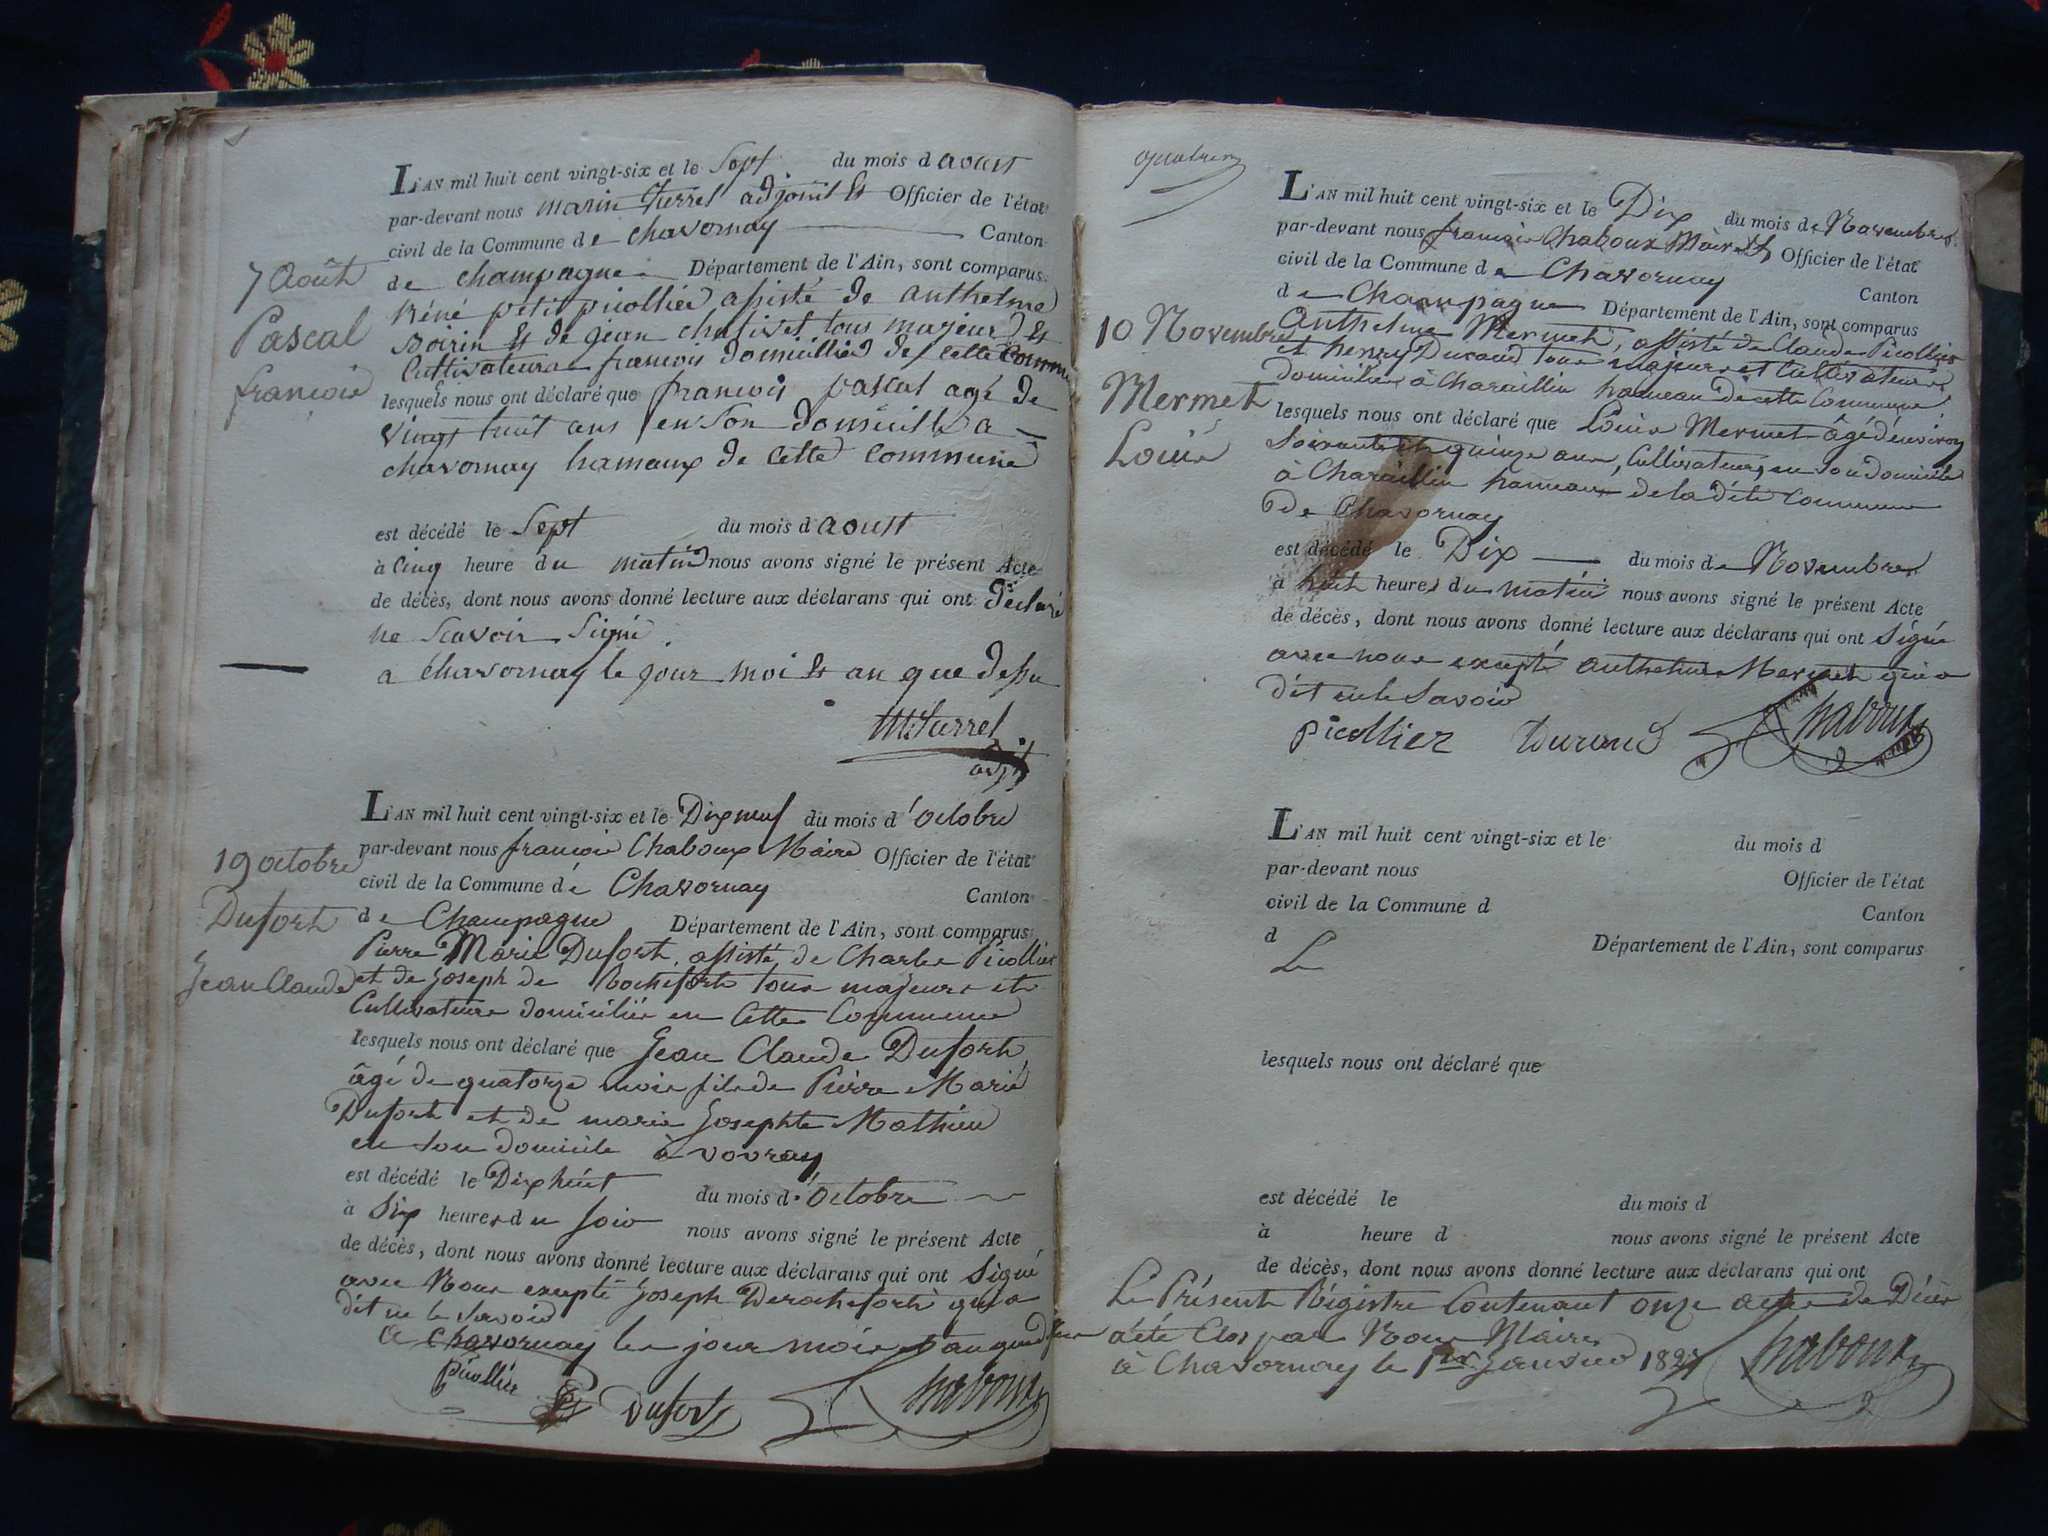 L'AN mil huit cent vingt-six et le Sept du mois d aoust
par-devant nous marin turrel adjoint & Officier de l'état
civil de la Commune de chavornay Canton
de champagne Département de l'Ain, sont comparus
Réné petit picollier, assisté de anthelme
& de jean tous majeurs &
Cultivateurs francois domicillies de cette commune
lesquels nous ont déclaré que françois pascal agé de
vingt huit ans en son domicille a
chavornay hameaux de cette commune
est décédé le Sept du mois d aoust
à Cinq heure du matin nous avons signé le présent Acte
de décès, dont nous avons donné lecture aux déclarans qui ont déclaré
ne Scavoir Signé
a chavornay le jour moi & an que dessu
M Turrel
adjt
7 Août
Pascal
françois
L'AN mil huit cent vingt-six et le Dix neuf du mois d'octobre
par-devant nous françois Chaboux Maire Officier de l'état
civil de la Commune de Chavornay Canton
de Champagne Département de l'Ain, sont comparus
Pierre Marie Dufort, assisté de Charles Picollier
et de Joseph de Rochefort tous majeurs et
Cultivateurs domiciliés en cette Commune
lesquels nous ont déclaré que Jean Claude Dufort,
âgé de quatorze mois fils de Pierre Marie
Dufort et de marie Josephte Mathieu
en son domicile à vovray
est décédé le Dix huit du mois d'octobre
à Six heures du soir nous avons signé le présent Acte
de décès, dont nous avons donné lecture aux déclarans qui ont Signé
avec Nous excepté Joseph Derochefort qui a
dit ne le savoir
a Chavornay les jour mois et an que dessus
Picollier Dufort Chaboux
19 octobre
Dufort
Jean Claude
L'AN mil huit cent vingt-six et le Dix du mois de Novembre
par-devant nous françois Chaboux Maire & Officier de l'état
civil de la Commune de Chavornay Canton
de Champagne Département de l'Ain, sont comparus
Anthelme Mermet, assisté de Claude Picollier
et henry Durand tous majeurs et Cultivateurs
domiciliés à Charaillin hameau de cette Commune
lesquels nous ont déclaré que Louis Mermet âgé d'environ
Soixante et quinze ans, Cultivateur, en son domicile
à Charaillin hameau de la dite Commune
De Chavornay
est décédé le Dix du mois de Novembre
à huit heures du matin nous avons signé le présent Acte
de décès, dont nous avons donné lecture aux déclarans qui ont Signé
avec nous excepté anthelme Mermet qui a
dit ne le Savoir
Picollier Durand Chaboux
10 Novembre
Mermet
Louis
L'AN mil huit cent vingt-six et le du mois d
par-devant nous Officier de l'état
civil de la Commune d Canton
d Département de l'Ain, sont comparus
Le
lesquels nous ont déclaré que
est décédé le du mois d
à heure d nous avons signé le présent Acte
de décès, dont nous avons donné lecture aux déclarans qui ont
Le Présent Régistre Contenant onze actes de Décès
a été Clos par Nous Maire
à Chavornay le 1er Janvier 1827 Chaboux